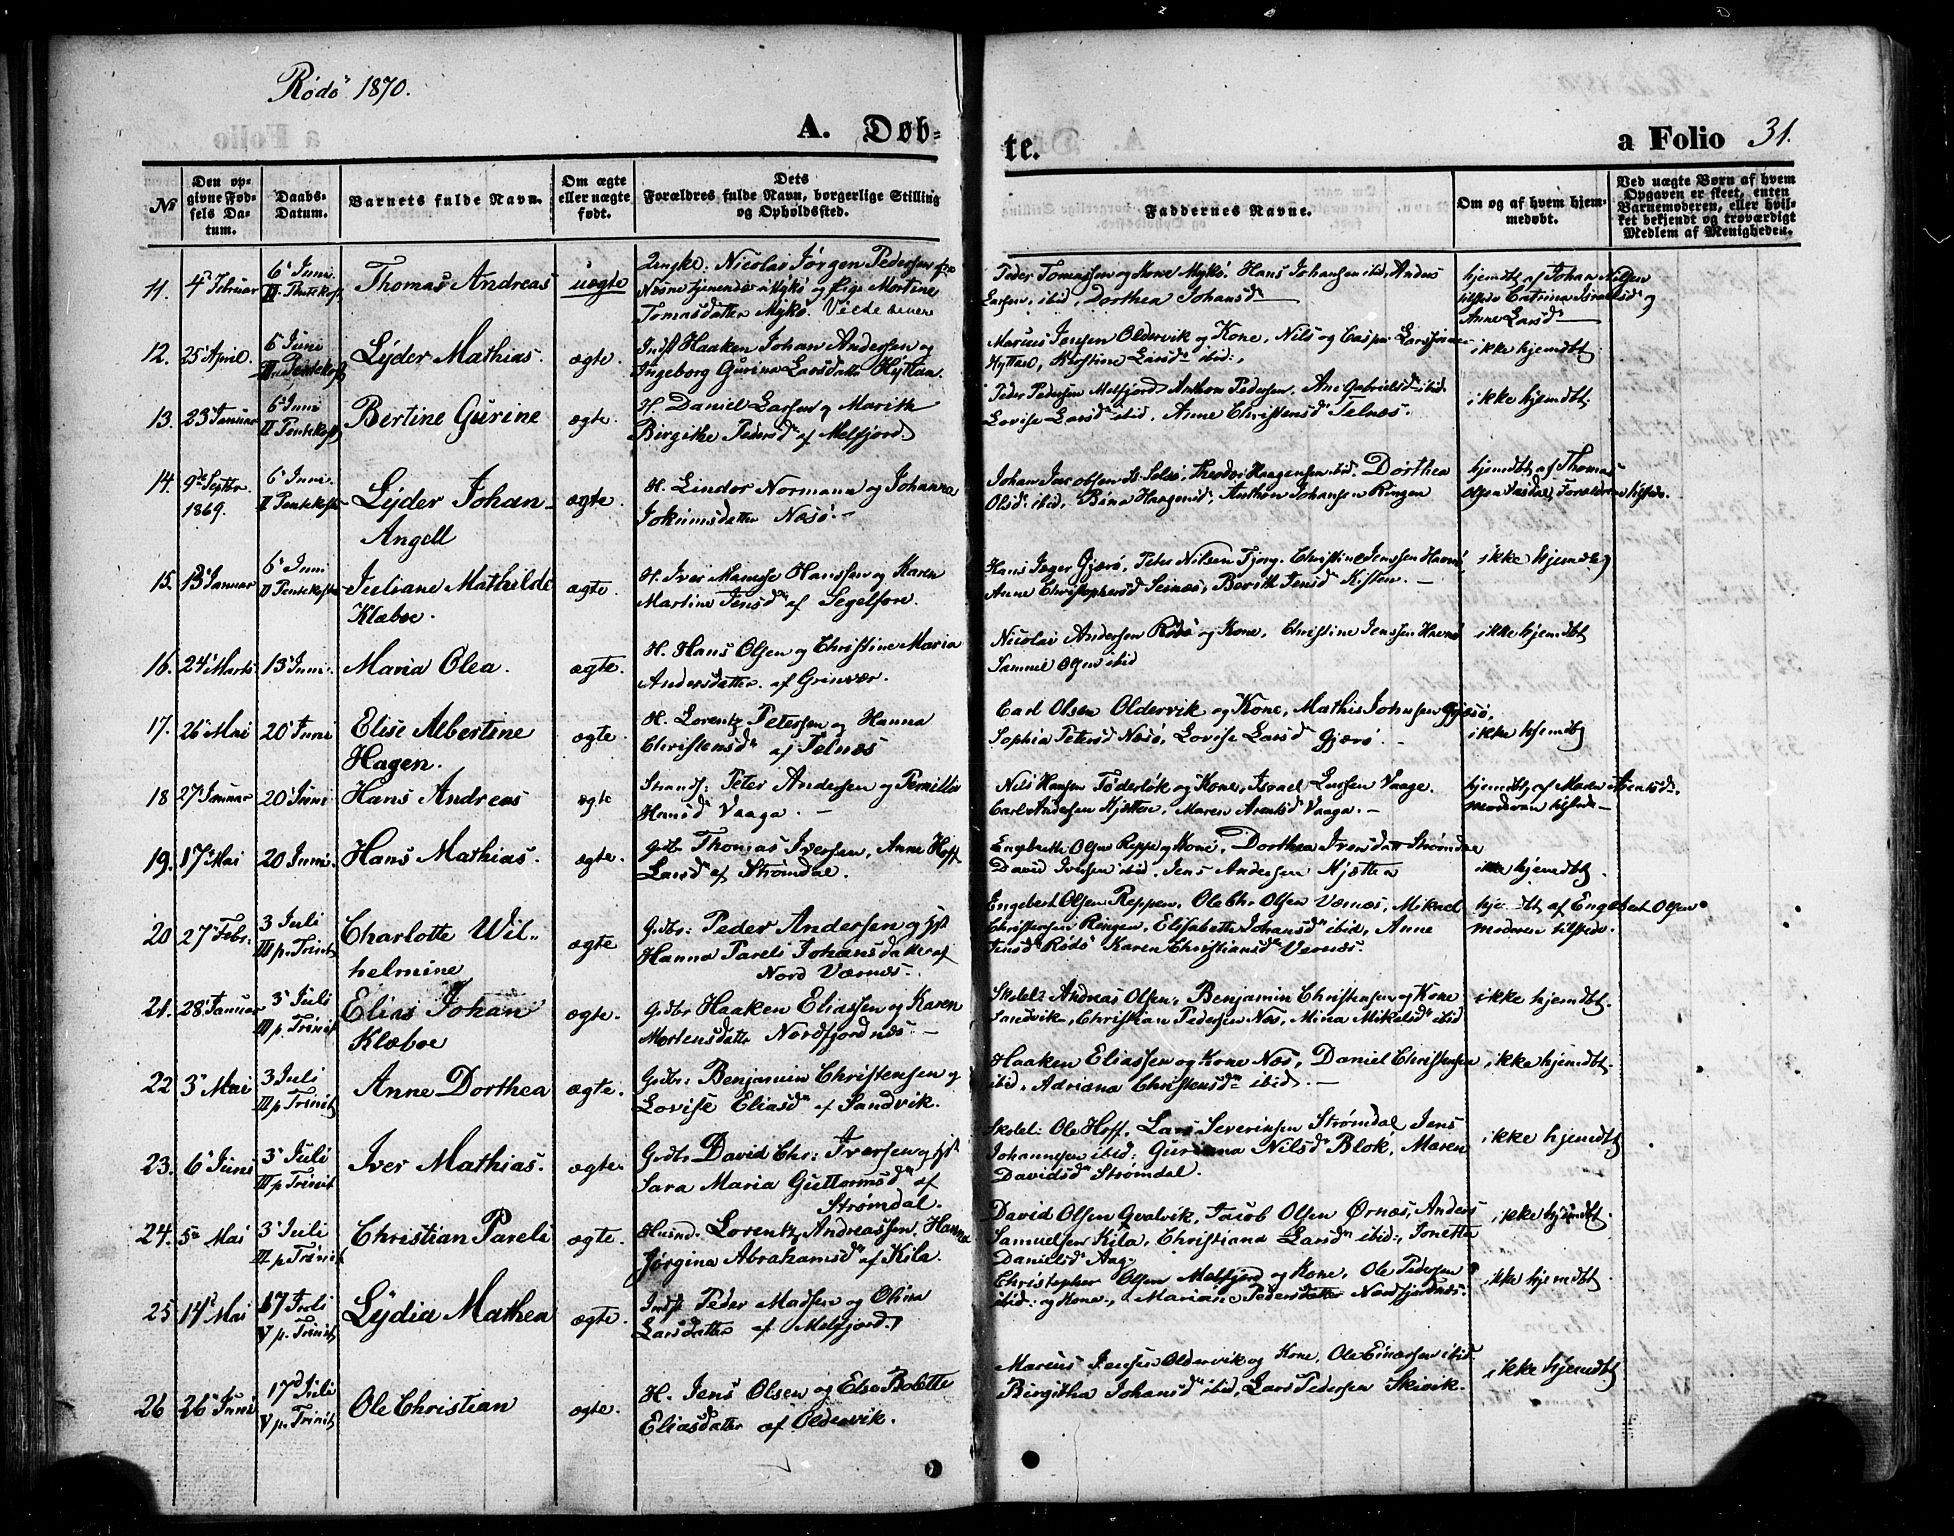 Rödö 1870.
A. Døb=
te.
a Folio 31.
№
Den op-
givne Fød-
sels Da-
tum.
Daabs-
Datum.
Barnets fulde Navn.
Om ægte
eller uægte
født.
Dets
Forældres fulde Navn, borgerlige Stilling
og Opholdssted.
Faddernes Navne.
Om og af hvem hjem-
medøbt.
Ved uægte Børn af hvem
Opgaven er skeet, enten
Barnemoderen, eller hvil-
ket bekjendt og troværdigt
Medlem af Menigheden.
11. 4 Februar
6 Juni
II Pentekost
Thomas Andreas
uægte
Ungk: Nicolai Jørgen Pedersen
tjenende Mykö og Pige Martine
Tomasdatter Mykö.
Peder Tomassen og Kone Mykö. Hans Johansen ibid, Anders
Larsen, ibid, Dorthea Johansd
hjemdbt af Johan Nilsen
tilstede Catrina Israelsd og
Anne Larsd
12. 25 April.
6 Juni
II Pentekost
Lyder Mathias.
ægte.
Indst Haaken Johan Andersen og
Ingeborg Gurina Larsdatter Hyttan.
Marius Jensen Oldervik og Kone, Nils og Caspar
Hyttan, Kirstine Larsd ibid.,
ikke hjemdbt
13. 23 Januar
6 Juni
II Pentekost
Bertine Gurine
ægte.
H. Daniel Larsen og Marith
Birgithe Pedersd af Melfjord.
Peder Pedersen Melfjord, Anthon Pedersen, Ane Gabrielsd ibid
Lovise Larsd ibid, Anne Christensd Telnæs.
ikke hjemdbt
14. 9de Septbr.
1869.
6 Juni
II Pentekost
Lyder Johan
Angell
ægte.
H. Lindor Normann og Johanna
Jokumsdatter Nesö.
Johan Jacobsen St. Selö, Theodor Haagensen ibid. Dorthea
Olsd ibid, Anthon Johansen Ringen
hjemdbt af Thomas
Olsen Forældrene tilstede.
15. 13 Januar
6 Juni
II Pentekost
Juliane Mathilde
Klæboe.
ægte.
H. Iver Hanssen og Karen
Martine Jensd af Segelfore.
Hans Jæger Gjærö, Peter Nilsen Tjong. Christine Jenssen Havnö
Anne Christophersd Seinæs, Berith Jensd Kisten.
ikke hjemdbt
16. 24 Marts
13 Juni.
Maria Olea.
ægte.
H. Hans Olsen og Christine Maria
Andersdatter af Grinvær.
Nicolai Andersen Rödö og Kone, Christine Jenssen Havnö
Samuel Olsen ibid
ikke hjemdbt
17. 26 Mai
20 Juni
Elise Albertine
Hagen.
ægte.
H. Lorentz Petersen og Hanna
Christensd af Telnæs
Carl Olsen Oldervik og Kone, Mathis Johnsen Gjærö,
Sophia Petersd Nesö, Lovise Larsd Gjærö.
ikke hjemdbt
18 27 Januar
20 Juni
Hans Andreas
ægte
Strands: Peter Andersen og Pernille
Hansd Vaaga.
Nils Hansen og Kone, Israel Larsen Vaage.
Carl Andersen Hjetten, Maren Arentsd Vaaga.
hjemdbt af Maren Arentsd
moderen tilstede
19. 17 Mai
20 Juni.
Hans Mathias.
ægte.
Gdbr Thomas Iversen, Anne Hoff
Larsd af Strömdal.
Engebrekt Olsen Reppe og Kone, Dorthea Iversdatt Strömdal
David Iversen ibid, Jens Andersen Hjetten
ikke hjemdbt.
20 27 Febr:
3 Juli
III p. Trinit
Charlotte Wil-
helmine
ægte
Gdbr: Peder Andersen og Hst
Hanna Pareli Johansdatter af
Nord Værnes.
Engebert Olsen Reppen, Ole Chr. Olsen Værnæs, Mikael
Christensen Ringen, Elisabeth Johansd ibid, Anne
Jensd Rödö Karen Christiansd Vernæs.
hjemdbt af Engebert Olsen
moderen tilstede.
21. 28 Januar
3 Juli
III p. Trinit
Elias Johan
Klæboe
ægte.
Gdbr Haaken Eliassen og Karen
Mortensdatter Nordfjordnæs.
Skolel: Andreas Olsen, Benjamin Christensen og Kone
Sandvik, Christian Pedersen Næs, Mina Mikelsd ibid
ikke hjemdbt.
22 3 Mai
3 Juli
III p. Trinit
Anne Dorthea
ægte.
Gdbr: Benjamin Christensen og
Lovise Eliasd af Sandvik.
Haaken Eliassen og Kone Næs, Daniel Christensen
ibid, Adriana Christensd ibid.
ikke hjemdbt.
23. 6 Juni
3 Juli
III p. Trinit
Iver Mathias.
ægte.
Gdbr David Chr: Iversen og Hst
Sara Maria Guttormsd af
Strømdal.
Skolel: Ole Hoff, Lars Severinsen Strømdal Jens
Johannesen ibid: Guriana Nilsd Blok, Maren
Davidsd Strömdal.
ikke hjemdbt
24. 5 Mai
3 Juli
III p. Trinit
Christian Pareli
ægte.
Husmd. Lorentz Andreassen, Hanna
Jørgina Abrahamsd af Kila.
David Olsen Qvalvik, Jacob Olsen Ørnæs, Anders
Samuelsen Kila, Christiana Larsd ibid., Jonetta
Danielsd Aag.
ikke hjemdbt.
25 14 Mai
17 Juli
V p. Trinit
Lydia Mathea
ægte.
Indst Peder Madsen og Olina
Larsdatter af Melfjord.
Christopher Olsen Melfjord og Kone, Ole Pedersen
ibid: og Kone, Mariane Pedersdatter Nordfjordnæs.
ikke hjemdbt.
26 26 Juni
17 Juli
V p. Trinit
Ole Christian
ægte.
H. Jens Olsen og Else Bolette
Eliasdatter af Oldervik.
Marius Jensen Oldervik og Kone, Ole Einersen ibid
Birgitha Johansd ibid, Lars Pedersen Skivik.
ikke hjemdbt